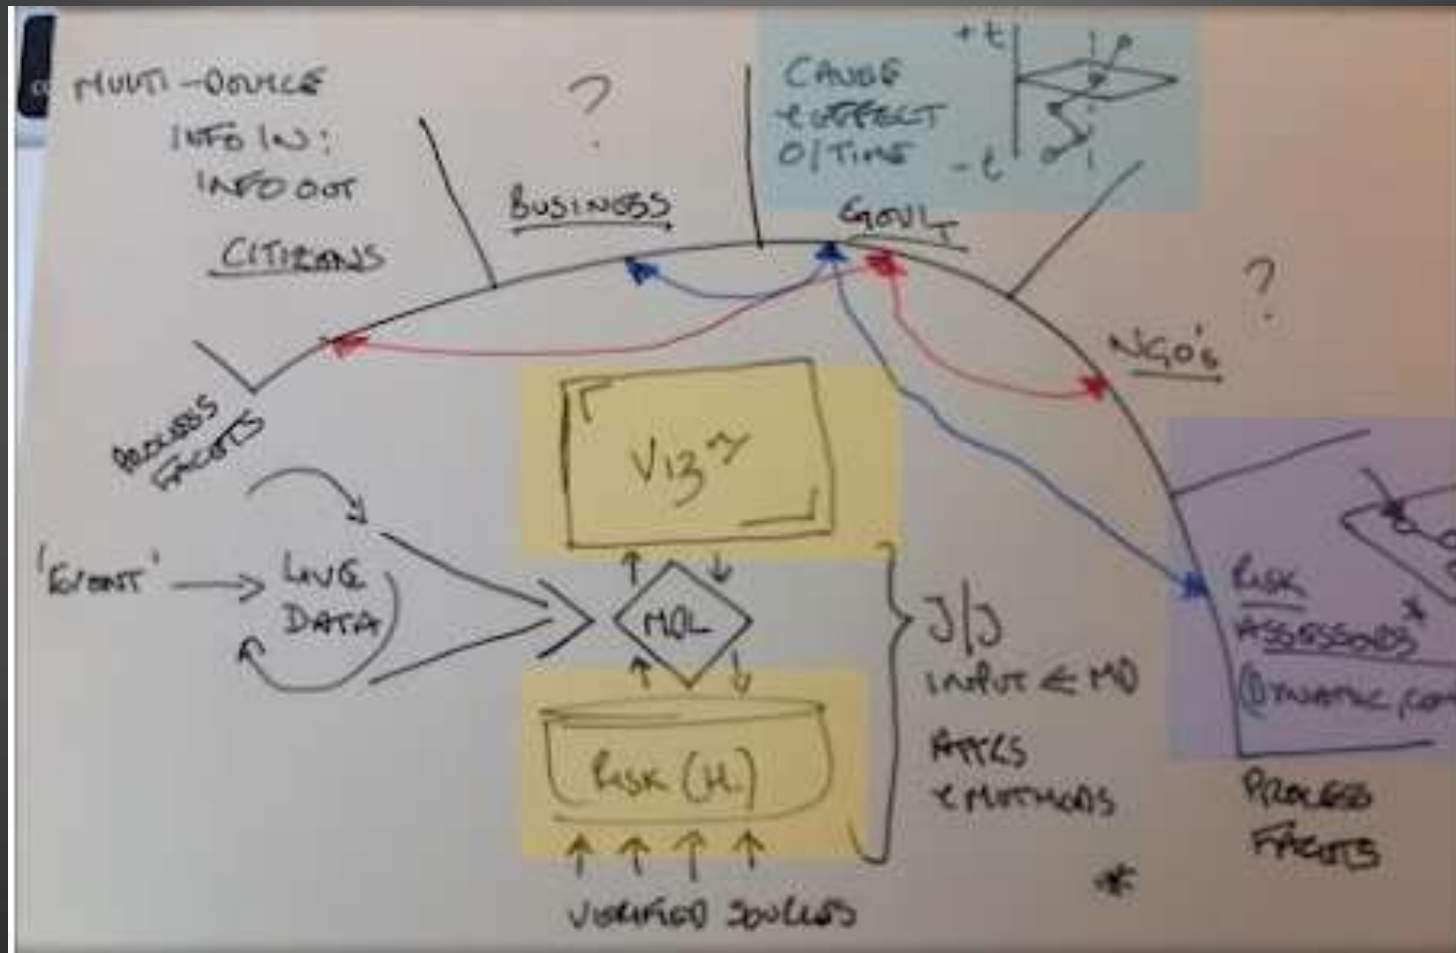 MULTI-SOURCE
INFO IN:
INFO OUT
CITIZENS
?
BUSINESS
CAUSE
& EFFECT
O/TIME
+t
-t
GOVT
?
NGO's
PROCESS
FACETS
'EVENT'
LIVE
DATA
VIZ
MDL
RISK (H.)
VERIFIED SOURCES
J/J
INPUT ← MD
ATTRS
& METHODS
*
RISK
ASSESSORS *
PROCESS
FACETS